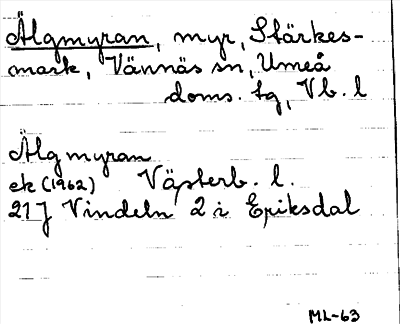 Älgmyran, myr, Stärkes-
mark, Vännäs sn, Umeå
doms. tg, Vb. l
Älgmyran
ek (1962) Västerb. l.
21J Vindeln 2 i Eriksdal
ML-63